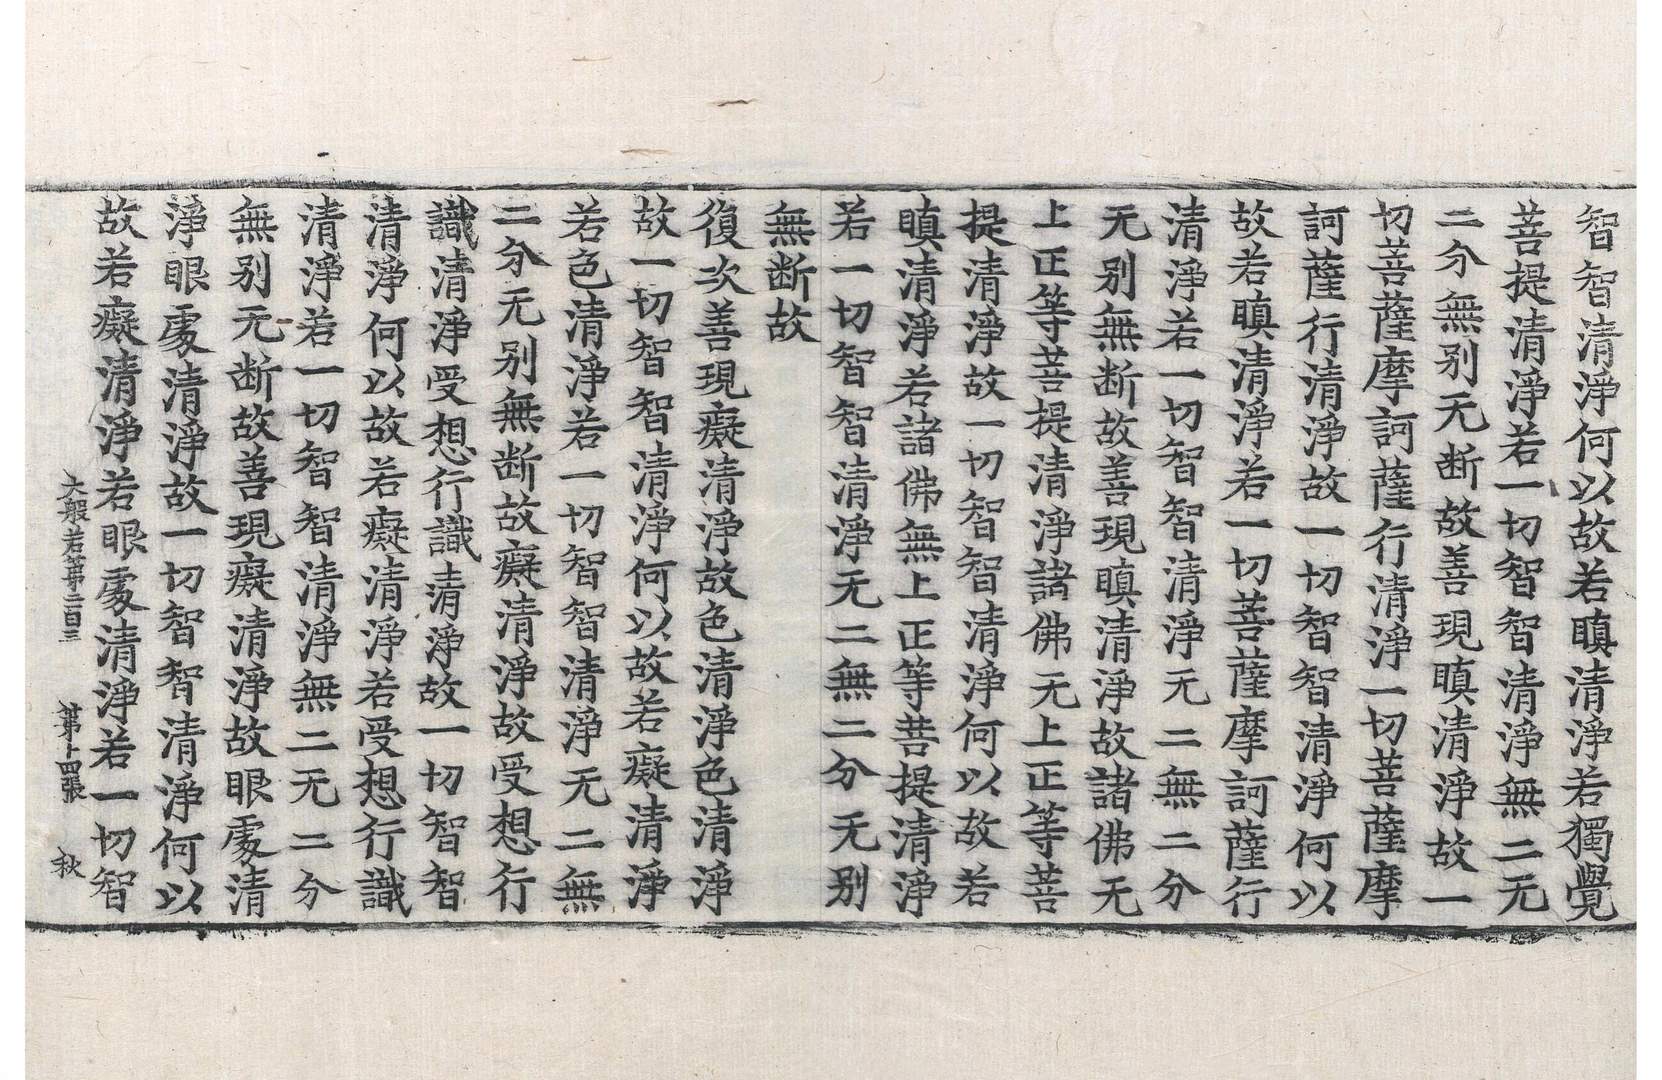 智智清淨何以故若瞋清淨若獨覺
菩提清淨若一切智智清淨無二无
二分無別无断故善現瞋清淨故一
切菩薩摩訶薩行清淨一切菩薩摩
訶薩行清淨故一切智智清淨何以
故若瞋清淨若一切菩薩摩訶薩行
清淨若一切智智清淨无二無二分
无別無断故善現瞋清淨故諸佛无
上正等菩提清淨諸佛无上正等菩
提清淨故一切智智清淨何以故若
瞋清淨若諸佛無上正等菩提清淨
若一切智智清淨无二無二分无別
無断故
復次善現癡清淨故色清淨色清淨
故一切智智清淨何以故若癡清淨
若色清淨若一切智智清淨无二無
二分无別無断故癡清淨故受想行
識清淨受想行識清淨故一切智智
清淨何以故若癡清淨若受想行識
清淨若一切智智清淨無二无二分
無別无断故善現癡清淨故眼處清
淨眼處清淨故一切智智清淨何以
故若癡清淨若眼處清淨若一切智
大般若第二百三 第十四張 秋